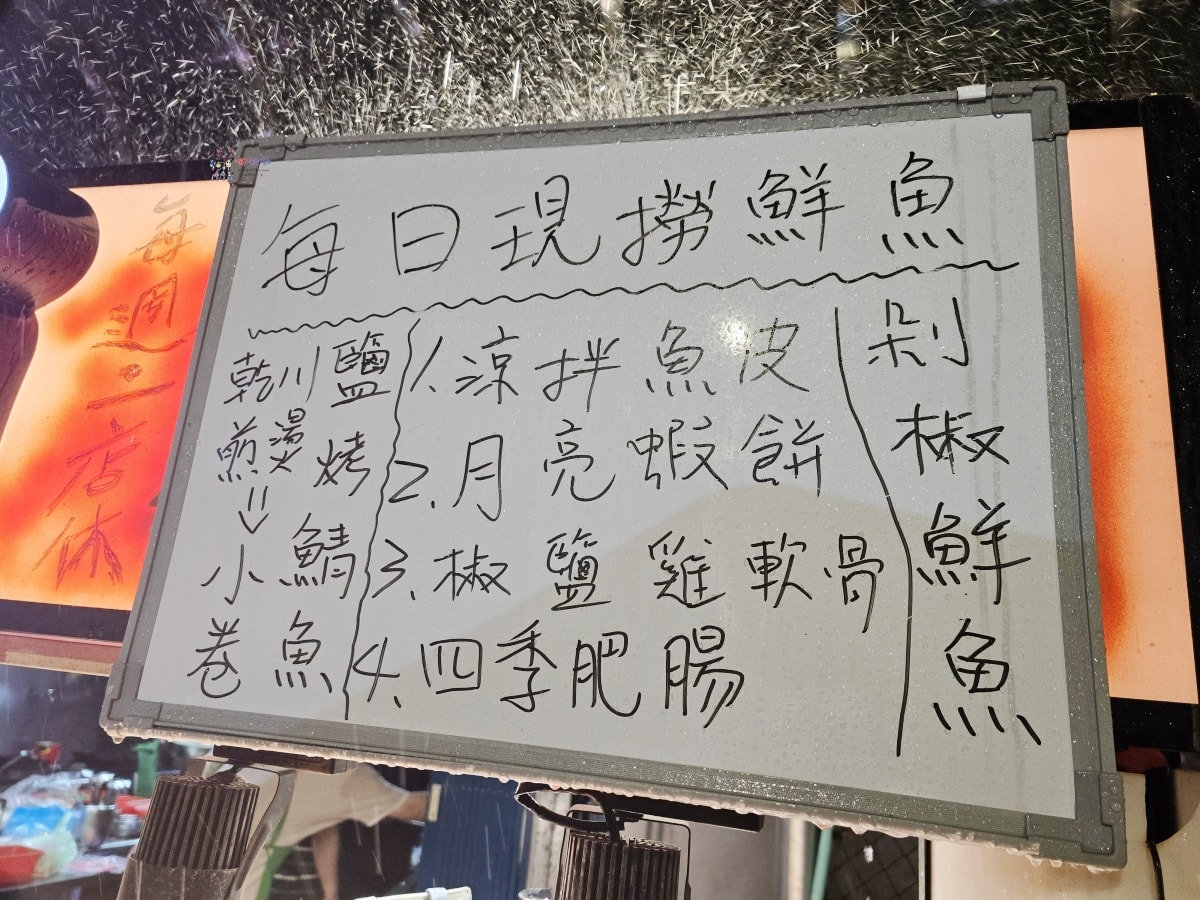 每日現撈鮮魚
剁椒鮮魚
1.涼拌魚皮
2.月亮蝦餅
3.椒鹽雞軟骨
4.四季肥腸
鹽烤鯖魚
川燙
乾煎
⇒小卷
每週二店休